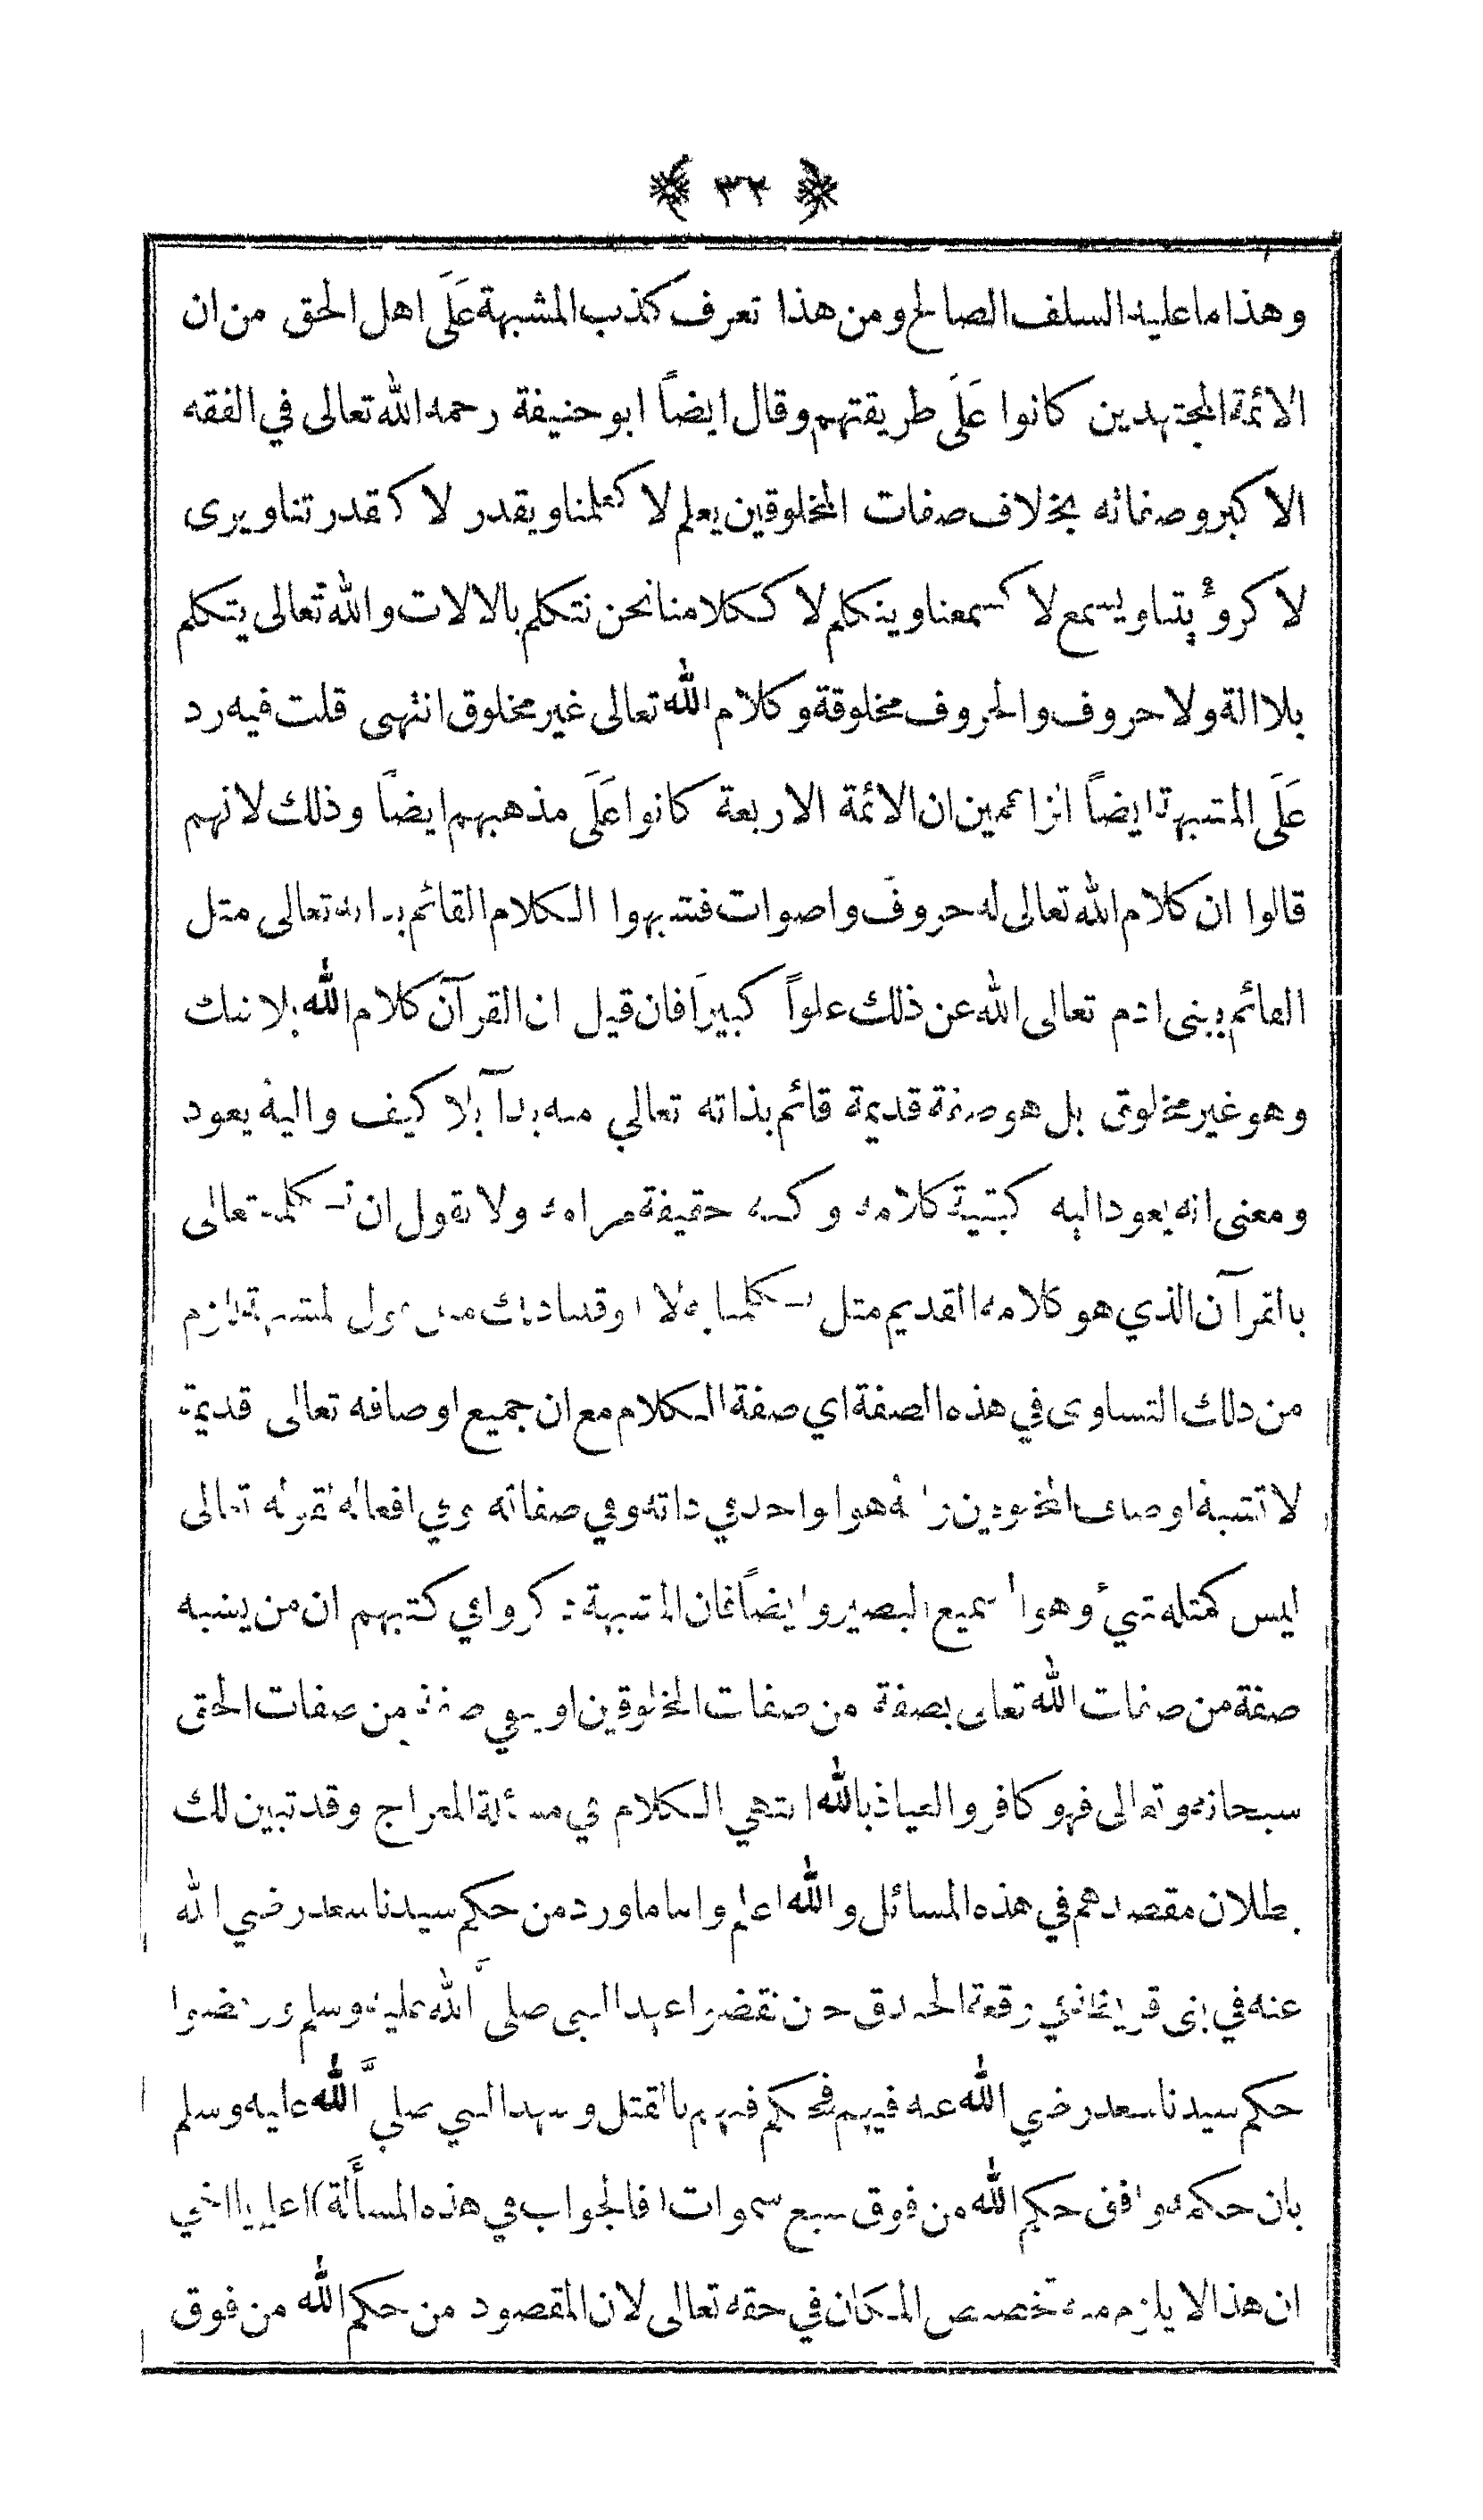 ٣٢
وهذا ما عليه السلف الصالح ومن هذا تعرف كذب المشبهة عَلَى اهل الحق من ان
الائمة المجتهدين كانوا عَلَى طريقتهم وقال ايضاً ابو حنيفة رحمه الله تعالى في الفقه
الاكبر وصفاته بخلاف صفات المخلوقين يعلم لا كعلمنا ويقدر لا كقدرتنا ويرى
لا كرؤيتنا ويسمع لا كسمعنا ويتكلم لا ككلامنا نحن نتكلم بالالات والله تعالى يتكلم
بلا الة ولا حروف والحروف مخلوقة وكلام الله تعالى غير مخلوق انتهى قلت فيه رد
عَلَى المشبهة ايضاً الزاعمين ان الائمة الاربعة كانوا عَلَى مذهبهم ايضاً وذلك لانهم
قالوا ان كلام الله تعالى له حروف واصوات فشبهوا الكلام القائم بذاته تعالى مثل
القائم ببنى ادم تعالى الله عن ذلك علواً كبيراً فان قيل ان القرآن كلام الله بلا شك
وهو غير مخلوق بل هو صفة قديمة قائم بذاته تعالي منه بدآ بلا كيف واليه يعود
ومعنى انه يعود اليه كبقية كلامه وكنه حقيقة مراده ولا نقول ان تكلمه تعالى
بالقرآن الذي هو كلامه القديم مثل تكلمنا به لا
من ذلك التساوى في هذه الصفة اي صفة الكلام مع ان جميع اوصافه تعالى قديمة
لا تشبه اوصاف المخلوقين هوا واحد في ذاته وفي صفاته وفي افعاله لقوله تعالى
ليس كمثله شيء وهو السميع البصير وايضاً فان المشبهة ذكروا في كتبهم ان من يشبه
صفة من صفات الله تعالى بصفة من صفات المخلوقين او ينفي صفة من صفات الحق
سبحانه وتعالى فهو كافر والعياذ بالله انتهي الكلام في مسئلة المعراج وقد تبين لك
بطلان مقصدهم في هذه المسائل والله اعلم واما ما ورد من حكم سيدنا سعد رضي الله
عنه في بنى قريظة في وقعة الخندق حين نقضوا عهد النبى صلى الله عليه وسلم ورضوا
حكم سيدنا سعد رضي الله عنه فيهم فحكم فيهم بالقتل وشهد النبي صلي الله عليه وسلم
بان حكمه وافق حكم الله من فوق سبع سموات (فالجواب في هذه المسألة) اعلم يا اخي
ان هذا لا يلزم منه تخصيص المكان في حقه تعالى لان المقصود من حكم الله من فوق